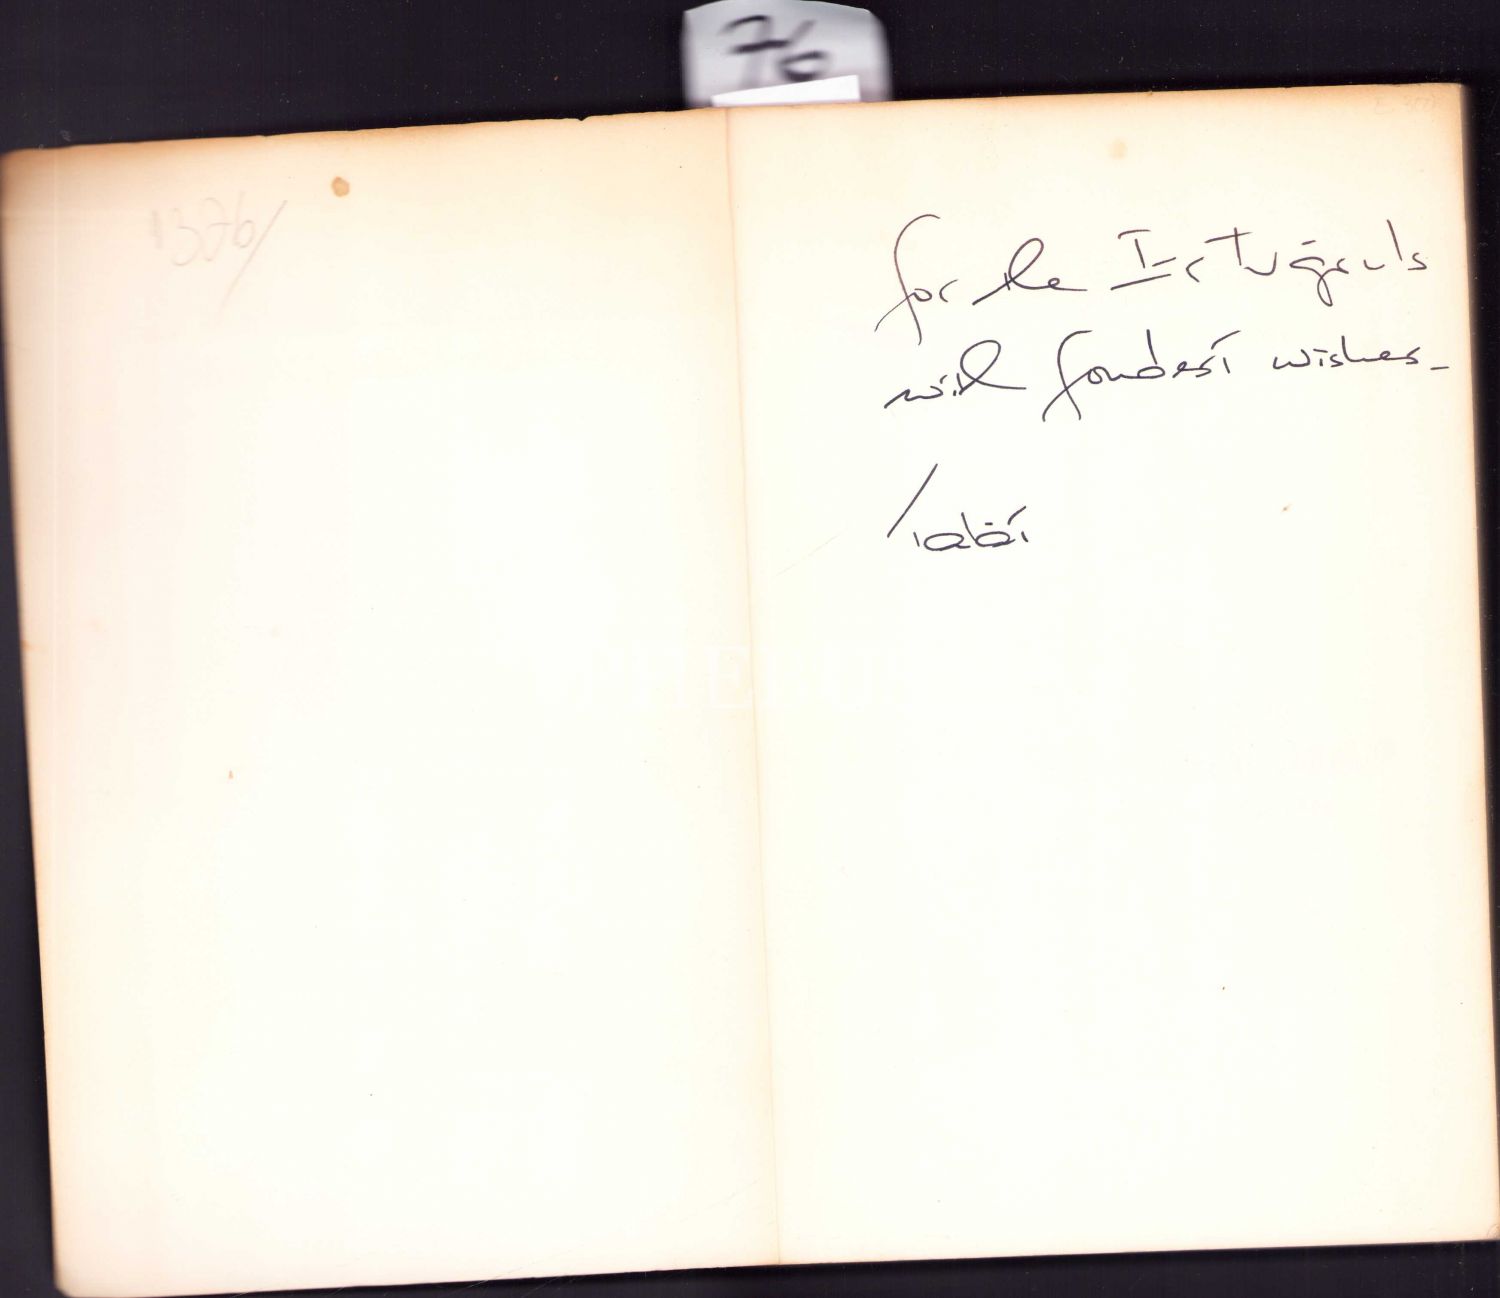 76
1376/
for the Ertuğruls
with fondest wishes_
PHEBUS